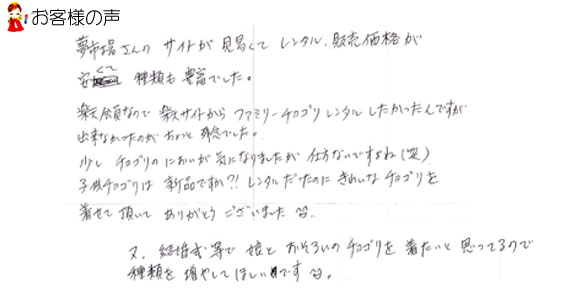 お客様の声
夢市場さんの サイトが 見易くて レンタル、販売価格が
安くて 種類も 豊富でした。
楽天会員なので 楽天サイトから ファミリーチョゴリ レンタル したかったんですが
出来なかったのが ちょっと 残念でした。
少し チョゴリの においが 気になりましたが 仕方ないですよね(笑)
子供チョゴリは 新品ですか?! レンタルだったのに きれいな チョゴリを
着せて 頂いて ありがとう ございました
又、結婚式等で 娘と おそろいの チョゴリを 着たいと 思ってるので
種類を 増やして ほしいです